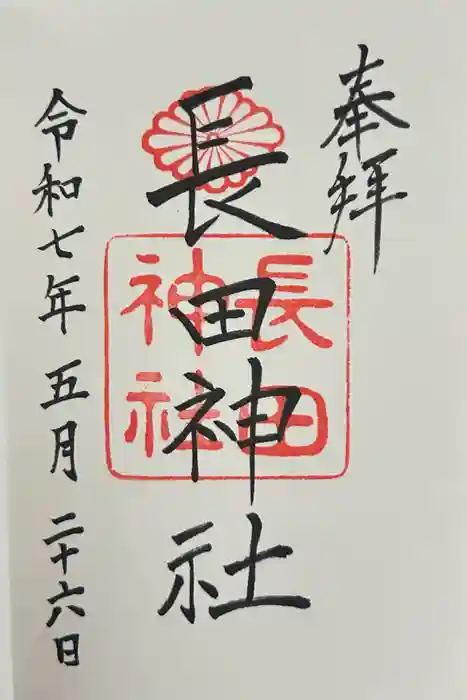 奉拝
長田神社
長田
神社
令和七年 五月 二十六日